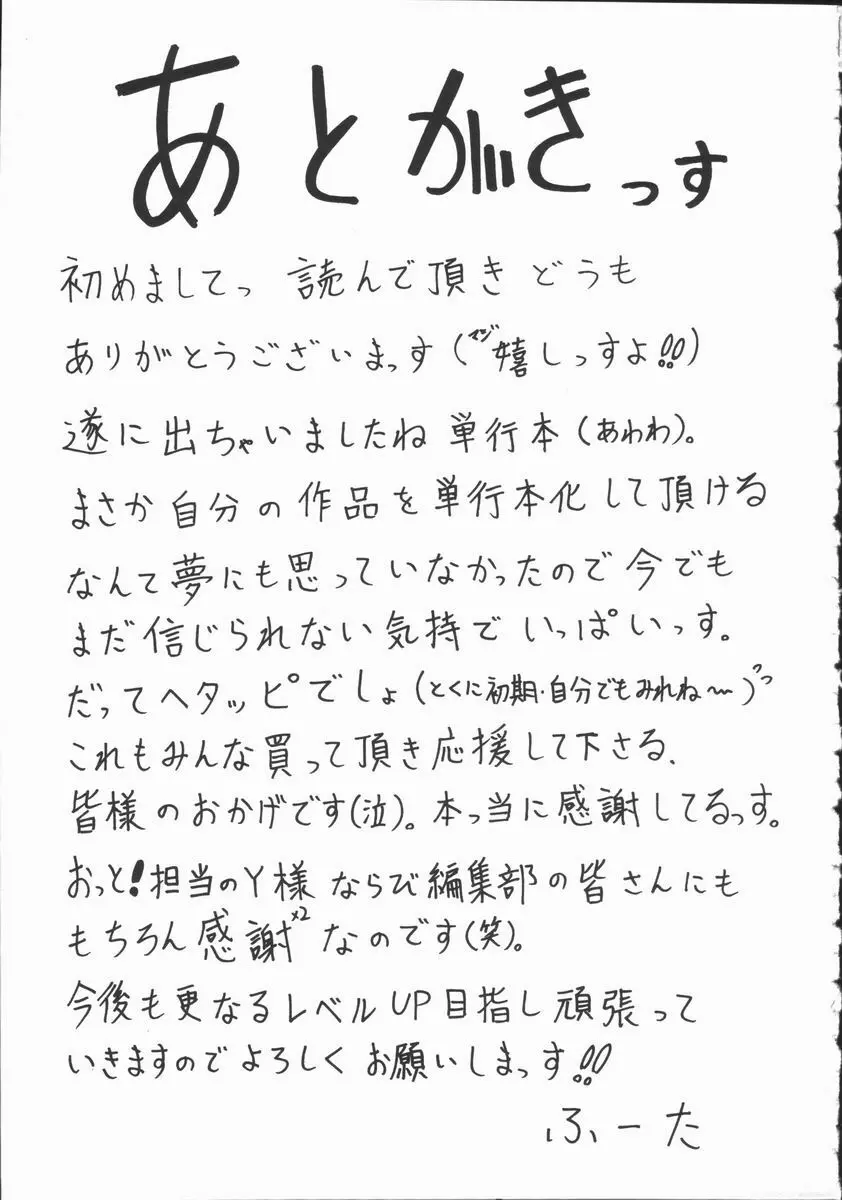 あとがきっす
初めましてっ 読んで頂きどうも
ありがとうございまっす(マジ嬉しっすよ!!)
遂に出ちゃいましたね単行本(あわわ)。
まさか自分の作品を単行本化して頂ける
なんて夢にも思っていなかったので今でも
まだ信じられない気持でいっぱいっす。
だってヘタッピでしょ(とくに初期・自分でもみれね〜)
これもみんな買って頂き応援して下さる、
皆様のおかげです(泣)。本っ当に感謝してるっす。
おっと!担当のY様ならび編集部の皆さんにも
もちろん感謝×2なのです(笑)。
今後も更なるレベルUP目指し頑張って
いきますのでよろしくお願いしまっす!!
ふーた